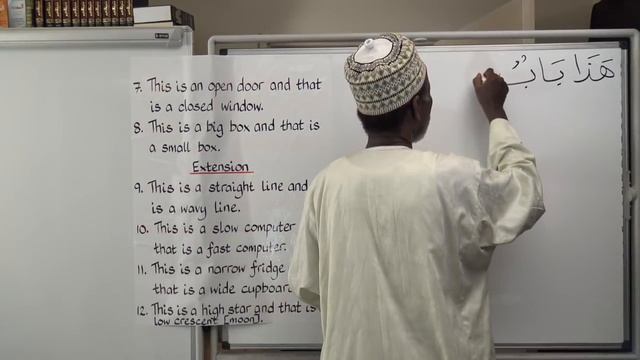 7. This is an open door and that
is a closed window.
8. This is a big box and that is
a small box.
Extension
9. This is a straight line and
is a wavy line.
10. This is a slow computer
that is a fast computer.
11. This is a narrow fridge
that is a wide cupboard
12. This is a high star and that is
low crescent [moon].
هَذَا بَابٌ